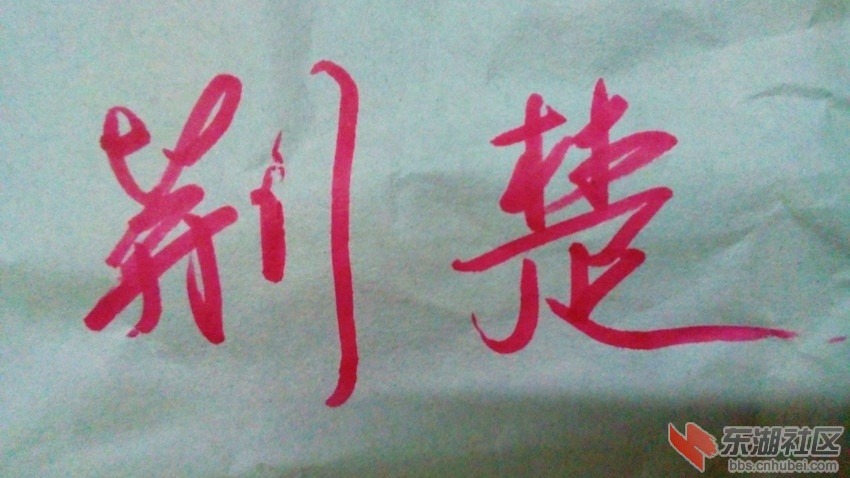 荆楚
东湖社区
bbs.cnhubei.com